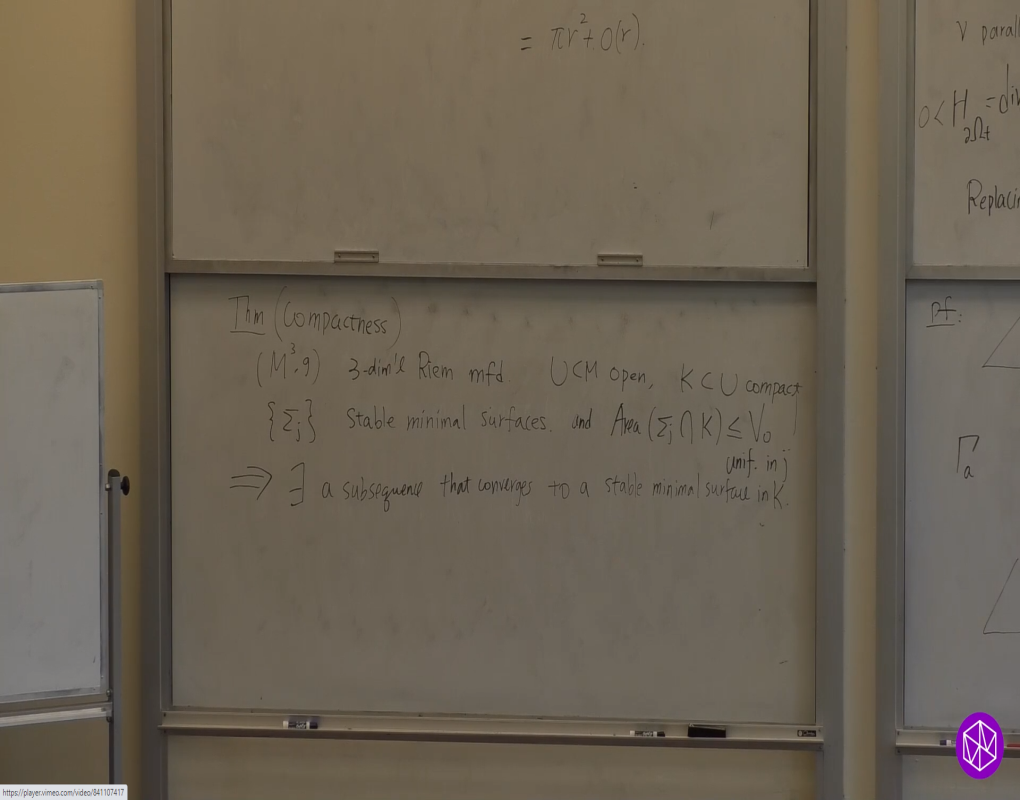 = πr² + O(r).
Thm (Compactness)
(M³, g) 3-dim'l Riem mfd. U⊂M open, K⊂U compact
{Σⱼ} Stable minimal surfaces. and Area (Σⱼ ∩ K) ≤ V₀
unif. in j
⇒ ∃ a subsequence that converges to a stable minimal surface in K.
V parall
0 < H_∂Ωt = div
Replacin
pf:
Γₐ
https://player.vimeo.com/video/841107417